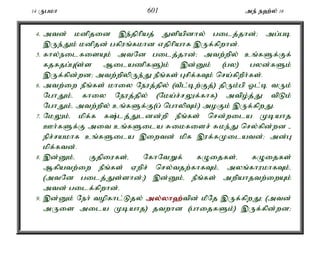 14 ருபமா 601 அந் நஹ்ல் 16
4. அவன் மனிதனை இந்திரியத் துளியினால் படைத்தான்; அப்படி
இருந்தும் மனிதன் பகிரங்கமான எதிரியாக இருக்கிறான்.
5. கால்நடைகளையும் அவனே படைத்தான்; அவற்றில் உங்களுக்குக்
கதகதப்பு(ள்ள ஆடையணிகளு)ம் இன்னும் (பல) பலன்களும்
இருக்கின்றன; அவற்றிலிருந்து நீங்கள் புசிக்கவும் செய்கிறீர்கள்.
6. அவற்றை நீங்கள் மாலை நேரத்தில் (வீட்டிற்குத்) திரும்பி ஓட்டி வரும்
போதும், காலை நேரத்தில் (மேய்ச்சலுக்காக) அவிழ்த்து விடும்
போதும், அவற்றில் உங்களுக்கு(ப் பொலிவும்) அழகும் இருக்கிறது.
7. மேலும், மிக்க கஷ்டத்துடனன்றி நீங்கள் சென்றடைய முடியாத
ஊர்களுக்கு அவை உங்களுடைய சுமைகளைச் சுமந்து செல்கின்றன -
நிச்சயமாக உங்களுடைய இறைவன் மிக இரக்கமுடையவன்; அன்பு
மிக்கவன்.
8. இன்னும், குதிரைகள், கோவேறுக் கழுதைகள், கழுதைகள்
ஆகியவற்றை நீங்கள் ஏறிச் செல்வதற்காகவும், அலங்காரமாகவும்,
(அவனே படைத்துள்ளான்;) இன்னும், நீங்கள் அறியாதவற்றையும்
அவன் படைக்கிறான்.
9. இன்னும் நேர் வழிகாட்டுதல் அல்லாஹ்வின் மீதே இருக்கிறது; (அவன்
அருளை அடைய முடியாத) தவறான (பாதைகளும்) இருக்கின்றன;